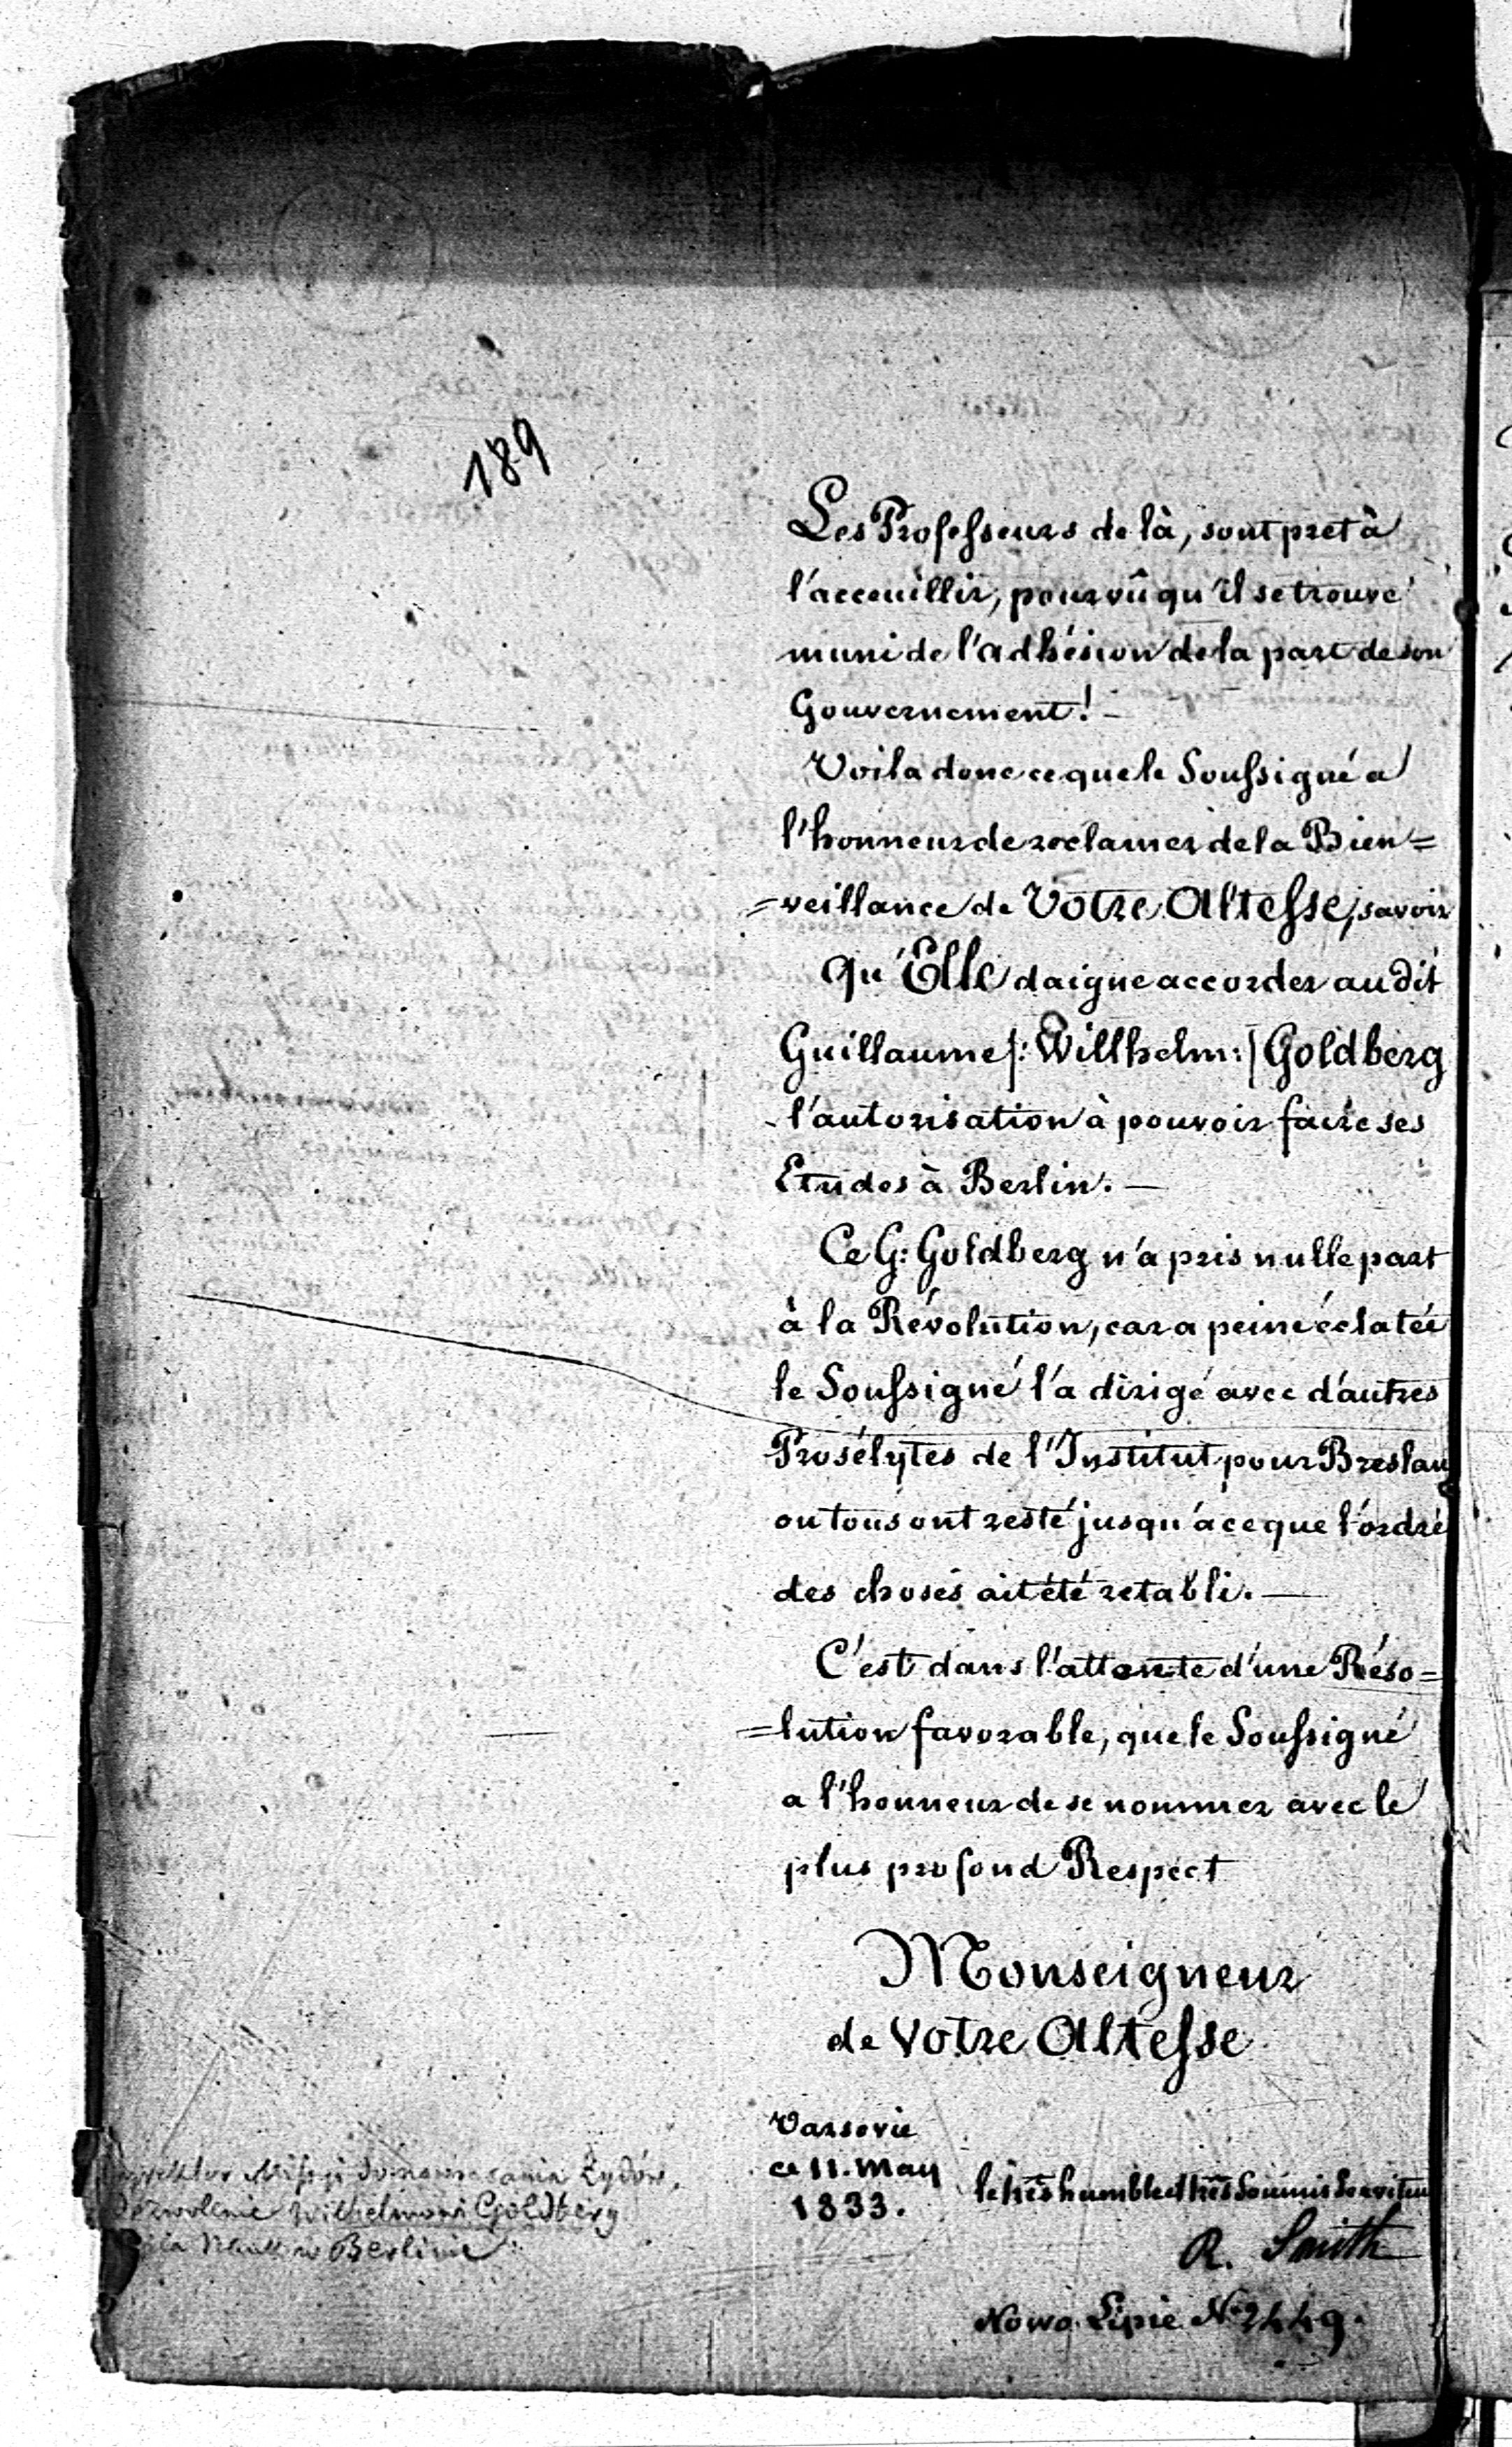 189
Les Professeurs de là, sont pret à
l'acceuillir, pourvû qu'il se trouve
muni de l'adhésion de la part de son
Gouvernement! –
Voila donc ce que le Soussigné a
l'honneur de reclamer de la Bien=
=veillance de Votre Altesse, savoir
qu'Elle daigne accorder au dit
Guillaume /: Willhelm :/ Goldberg
l'autorisation à pouvoir faire ses
Etudes à Berlin. —
Ce G: Goldberg n'a pris nulle part
à la Révolution, car a peine éclatée
le Soussigné l'a dirigé avec d'autres
Prosélytes de l'Institut pour Breslau
ou tous ont resté jusqu'à ce que l'ordre
des choses ait été retabli. —
C'est dans l'attente d'une Réso=
=lution favorable, que le Soussigné
a l'honneur de se nommer avec le
plus profond Respect
Monseigneur
de Votre Altesse
Varsovie
ce 11. May
1833.
le très humble et très Soumis Serviteur
R. Smith
Nowo Lipie No 2449.
Żydów,
Wilhelmowi Goldberg
w Berlinie